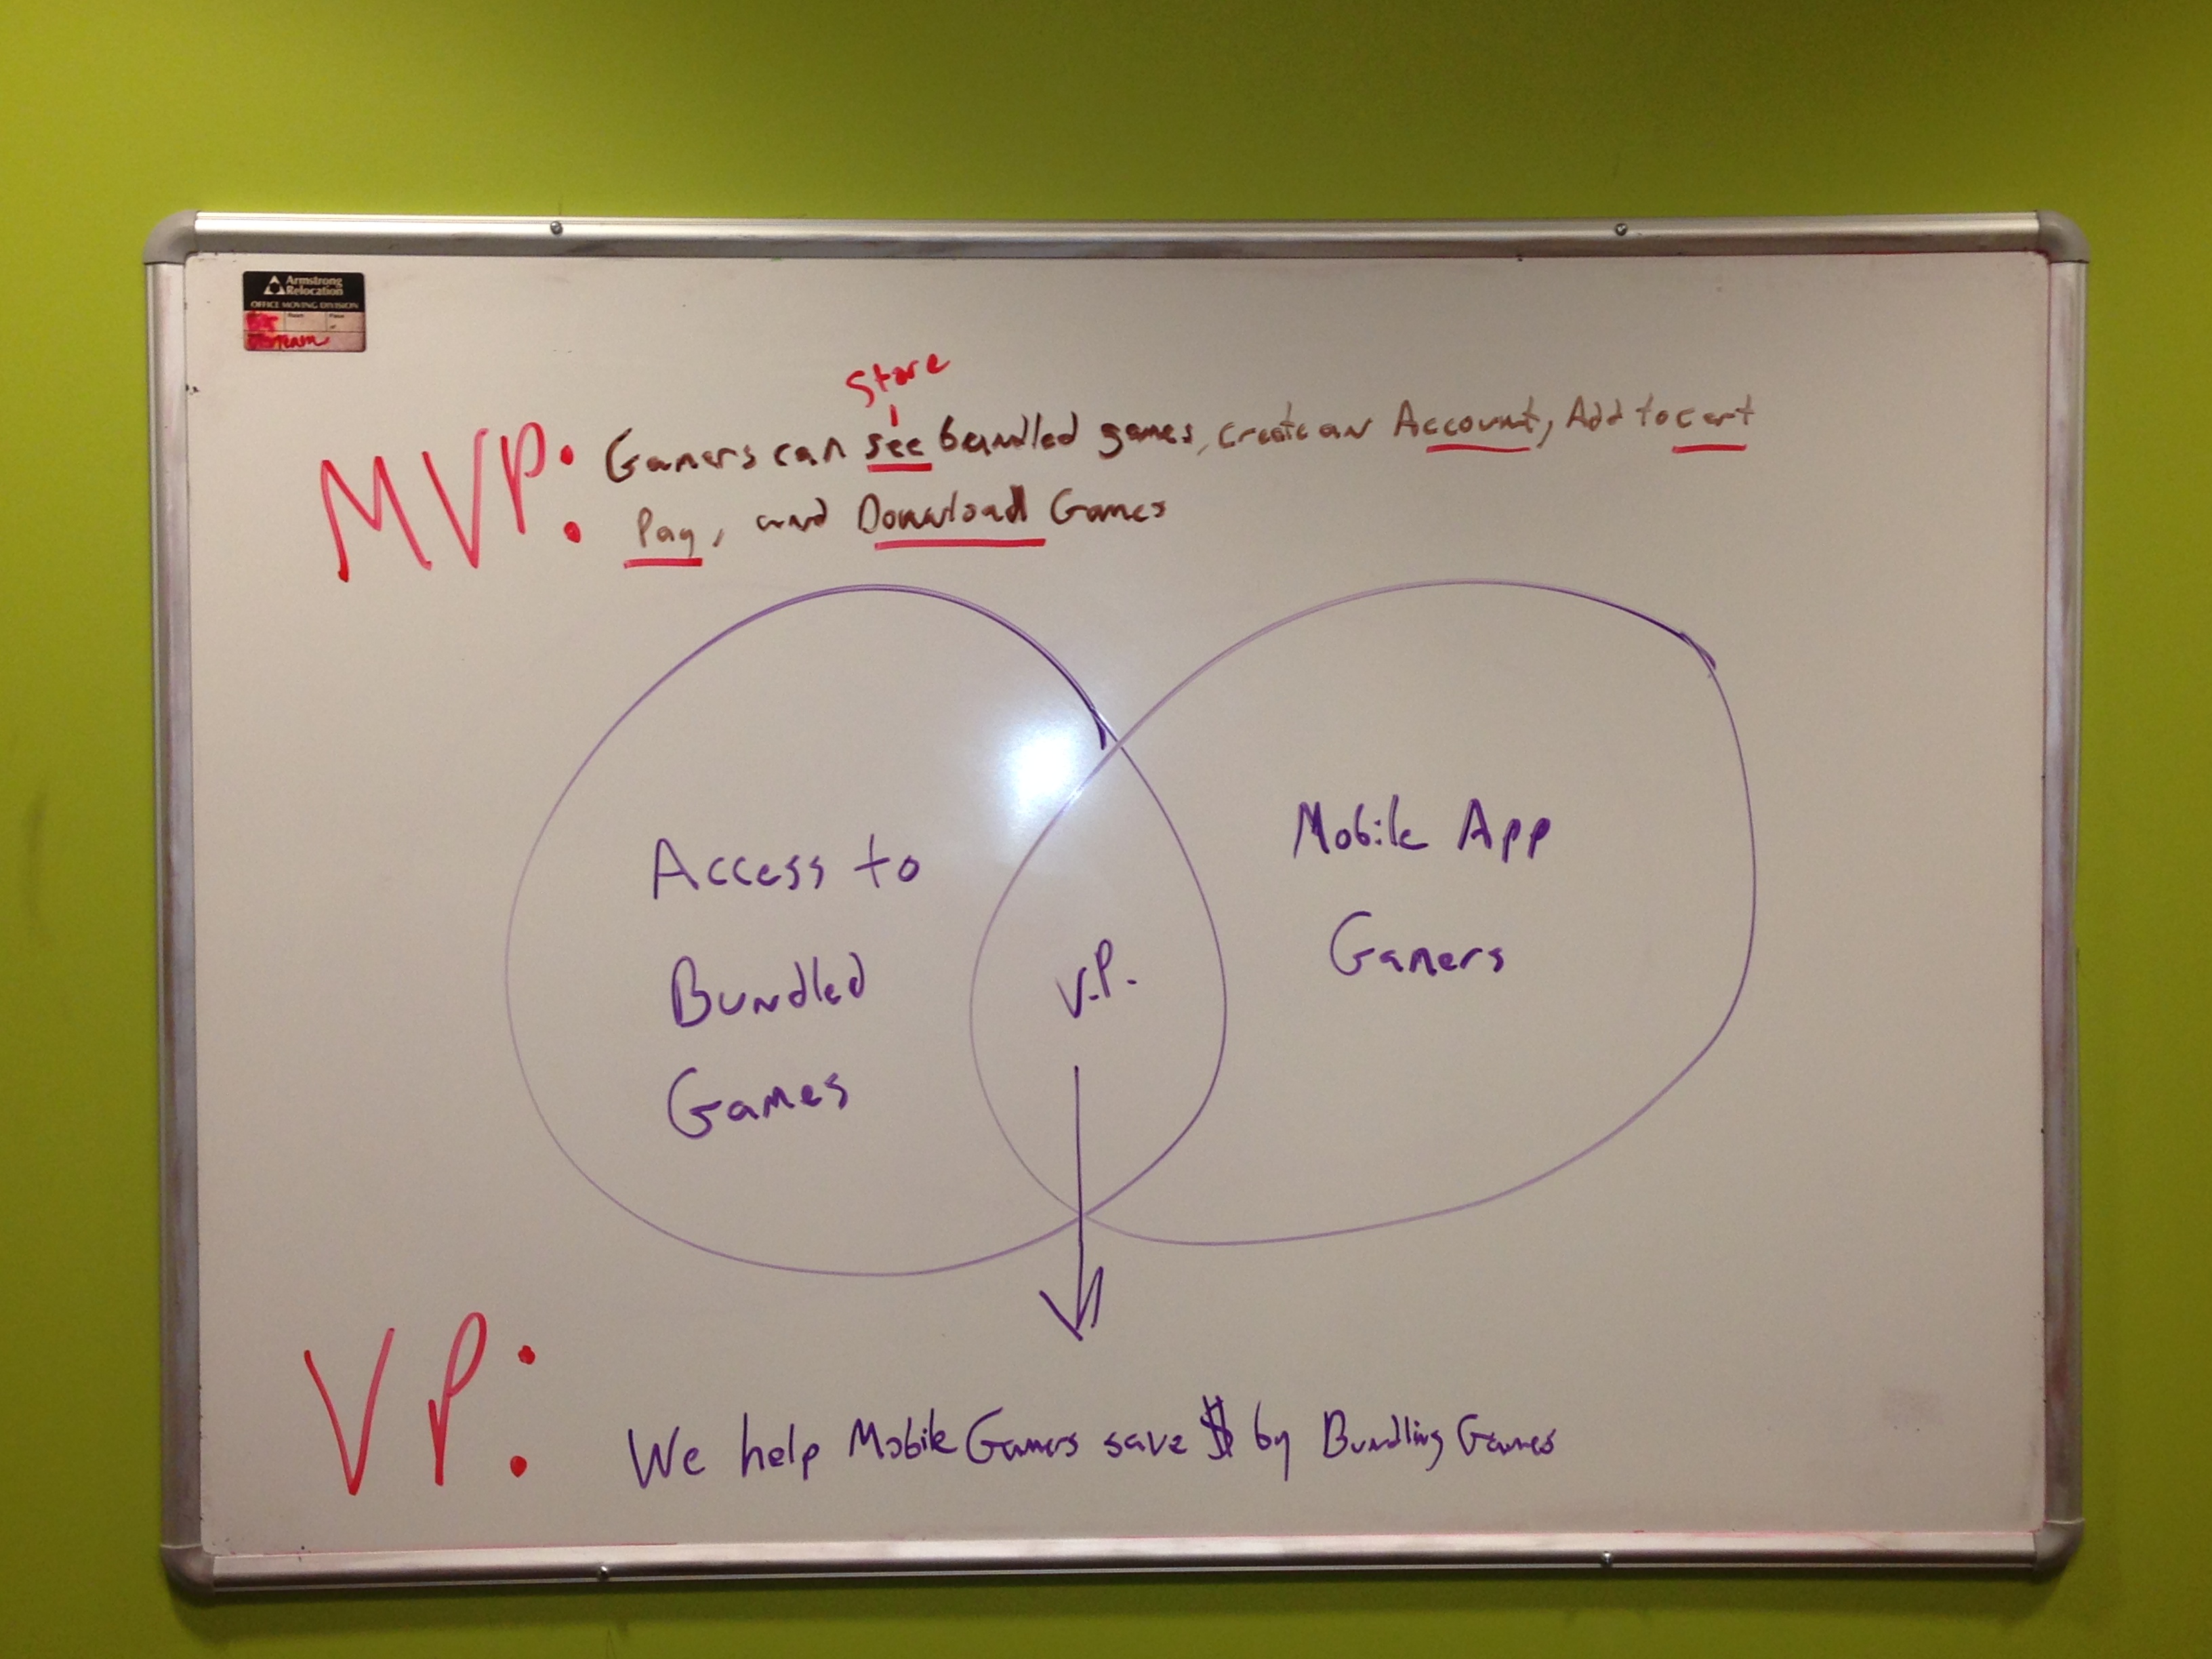 Armstrong
Relocation
OFFICE MOVING DIVISION
Room
Team
Store
MVP: Gamers can see bundled games, create an Account, Add to cart
Pay, and Download Games
Access to
Bundled
Games
V.P.
Mobile App
Gamers
VP: We help Mobile Gamers save $ by Bundling Games